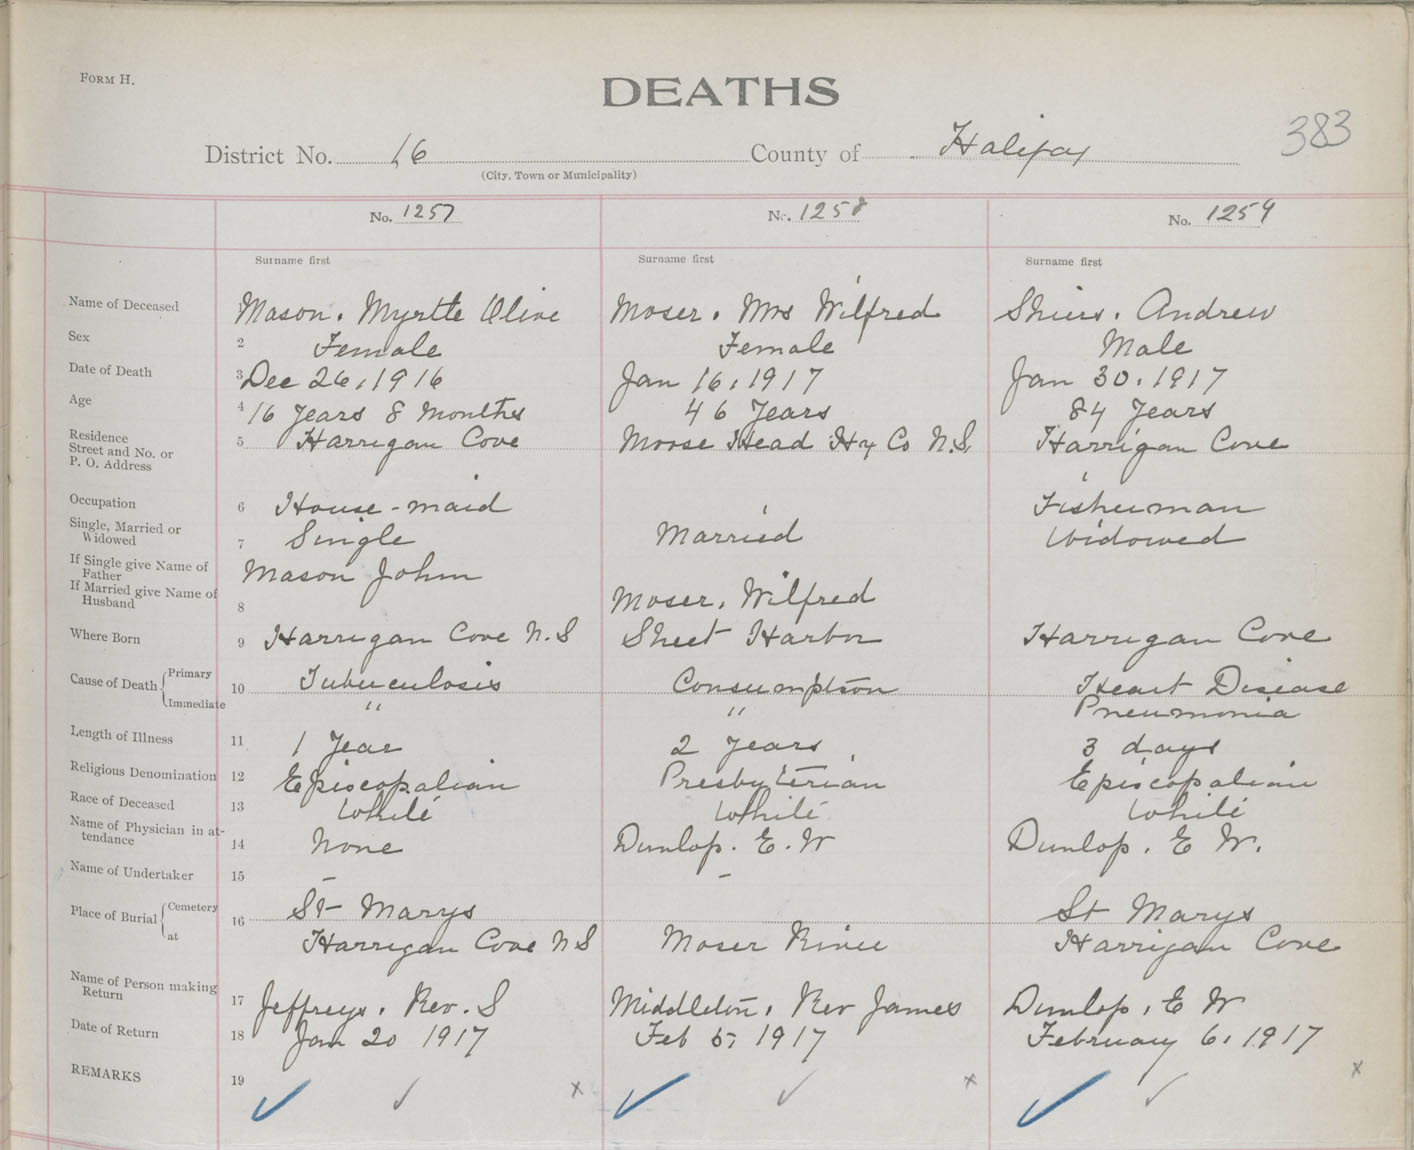 FORM H.
DEATHS
383
District No. 16 County of Halifax
(City, Town or Municipality)
No. 1257 No. 1258 No. 1259
Surname first Surname first Surname first
Name of Deceased 1 Mason. Myrtle Olive Moser. Mrs Wilfred Andrew
Sex 2 Female Female Male
Date of Death 3 Dec 26, 1916 Jan 16, 1917 Jan 30, 1917
Age 4 16 Years 8 Months 46 Years 84 Years
Residence Street and No. or P. O. Address 5 Harrigan Cove Moose Head Hx Co N.S. Harrigan Cove
Occupation 6 House-maid Fisherman
Single, Married or Widowed 7 Single Married Widowed
If Single give Name of Father Mason John
If Married give Name of Husband 8 Moser, Wilfred
Where Born 9 Harrigan Cove N.S Sheet Harbor Harrigan Cove
Cause of Death Primary 10 Tuberculosis Consumption Heart Disease
Immediate " " Pneumonia
Length of Illness 11 1 Year 2 Years 3 days
Religious Denomination 12 Episcopalian Presbyterian Episcopalian
Race of Deceased 13 White White White
Name of Physician in attendance 14 None Dunlop. E. W Dunlop, E W.
Name of Undertaker 15 - -
Place of Burial Cemetery 16 St Marys St Marys
at Harrigan Cove N S Moser River Harrigan Cove
Name of Person making Return 17 Jeffreys, Rev. S Middleton, Rev James Dunlop, E W
Date of Return 18 Jan 20 1917 Feb 5, 1917 February 6, 1917
REMARKS 19 ✓ ✓ x ✓ ✓ x ✓ ✓ x